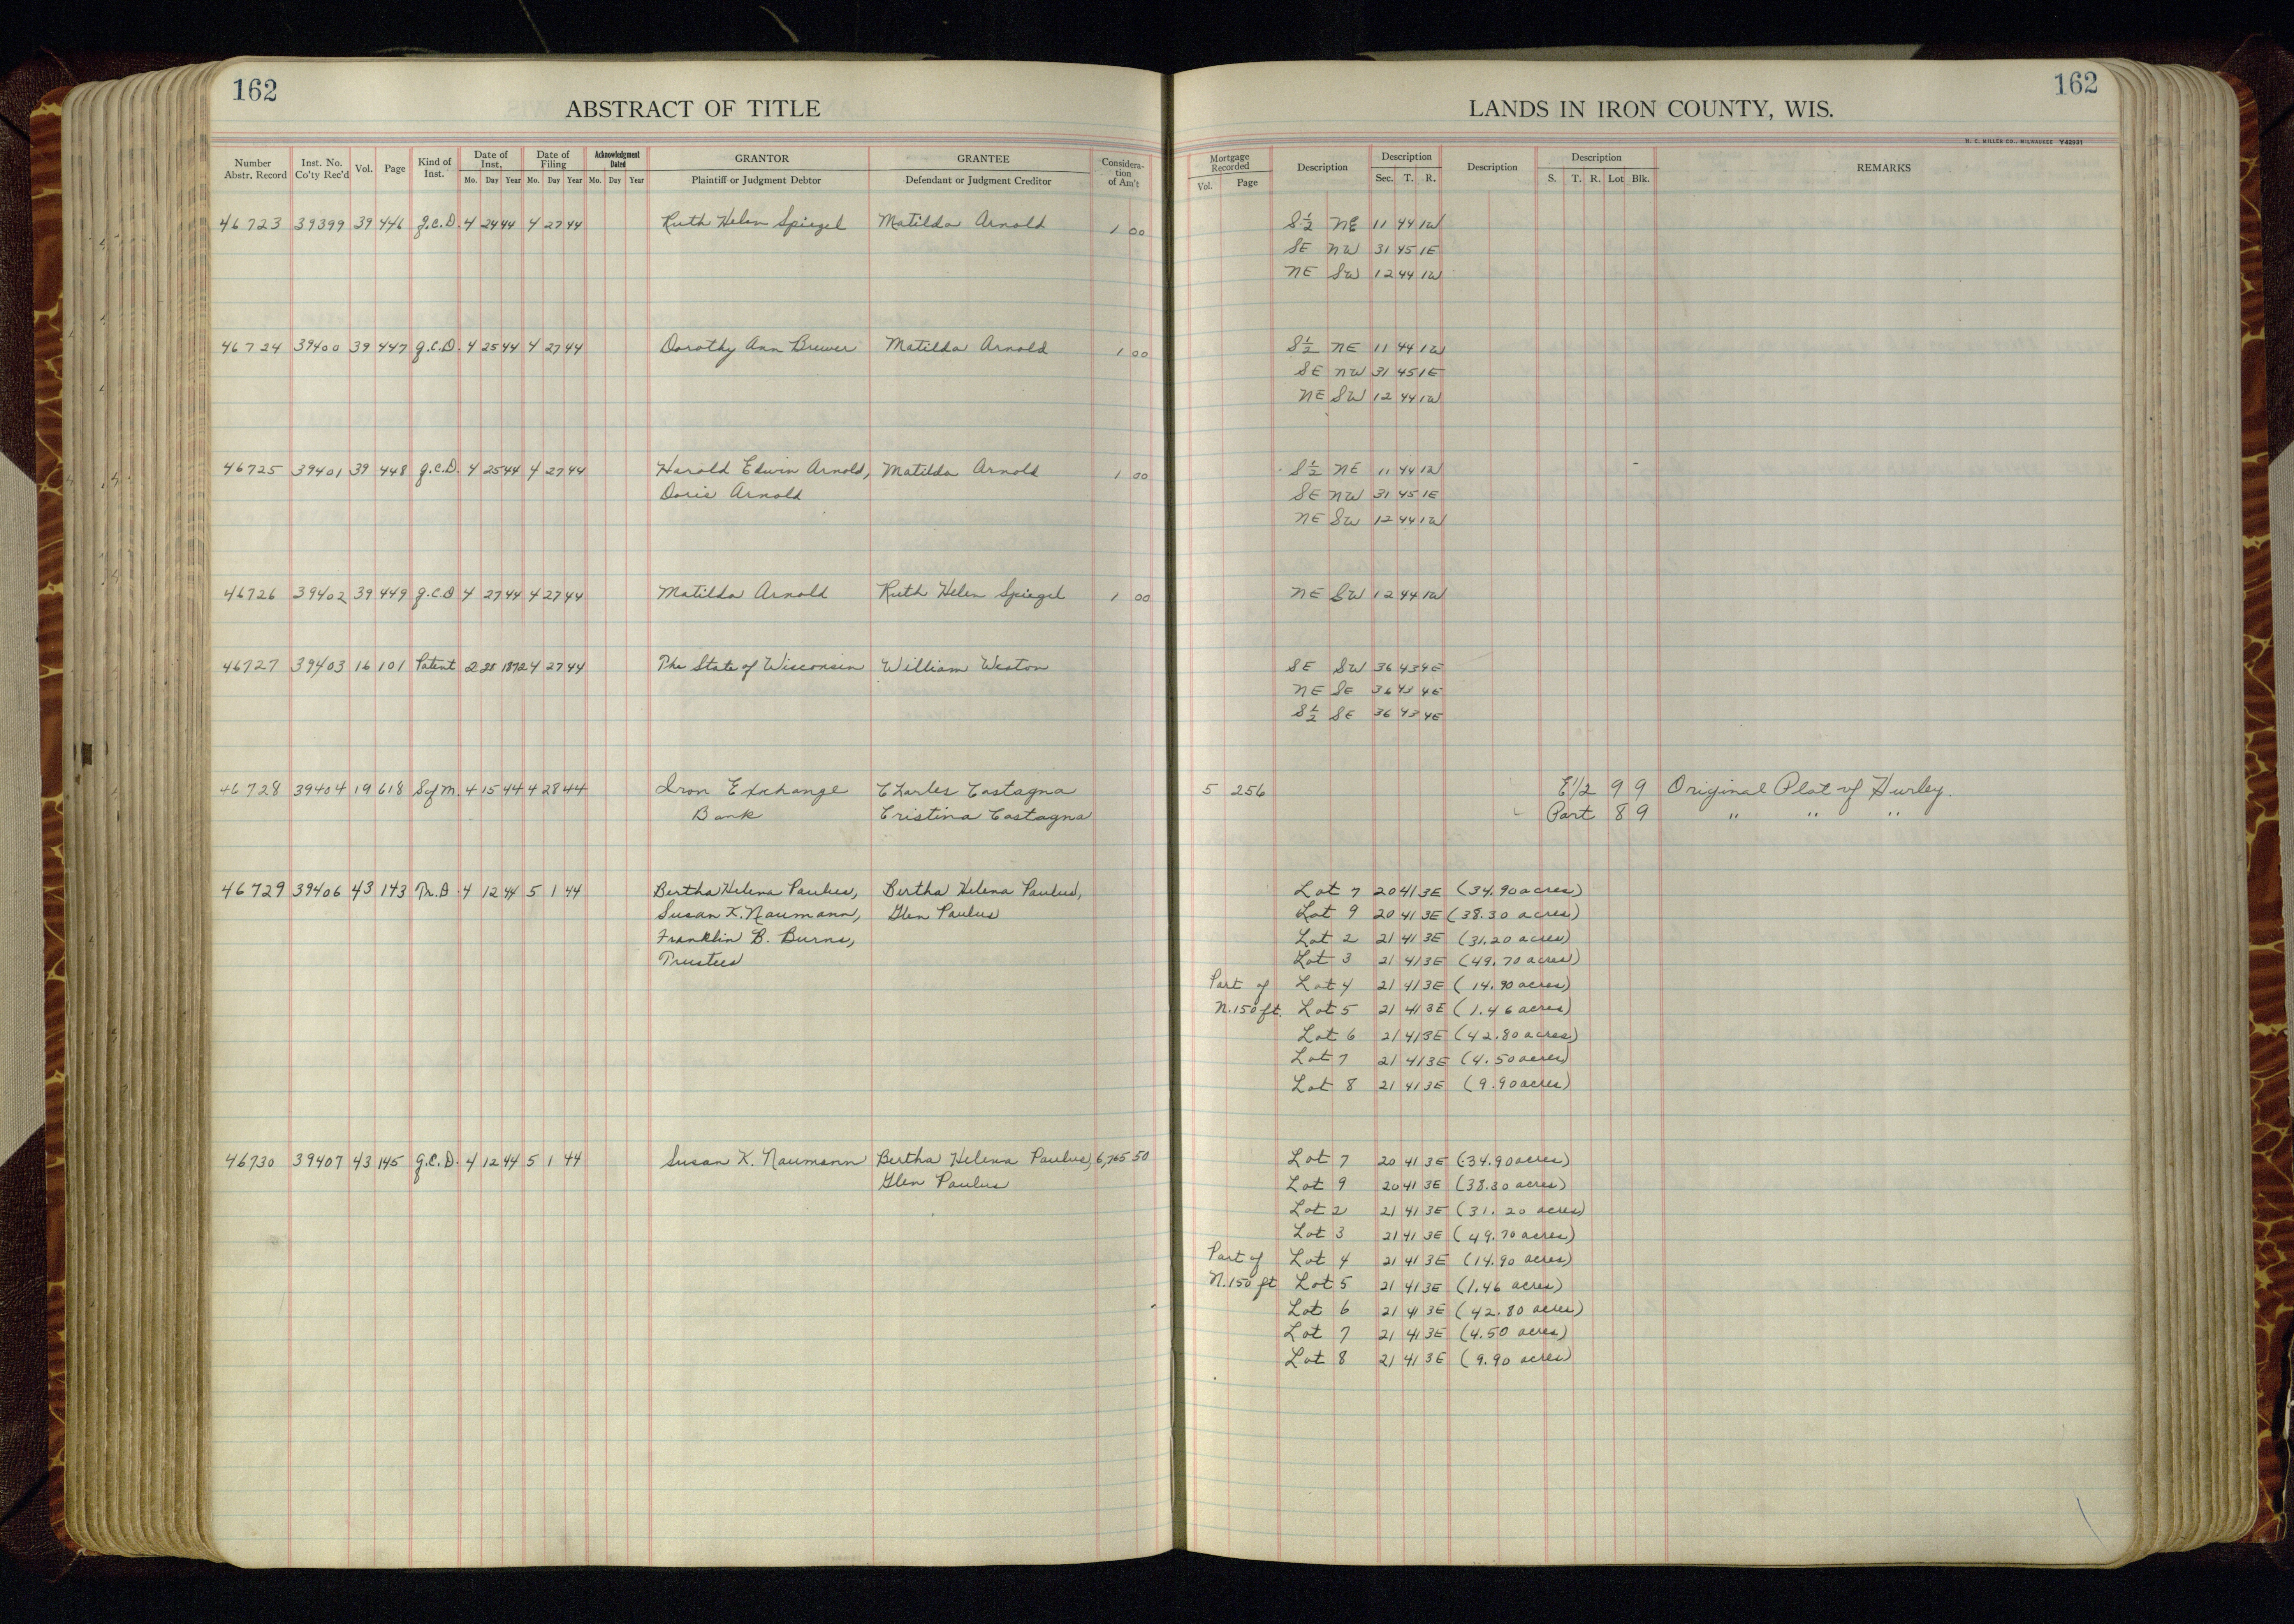 162
ABSTRACT OF TITLE
Number Abstr. Record | Inst. No. Co'ty Rec'd | Vol. | Page | Kind of Inst. | Date of Inst. Mo. Day Year | Date of Filing Mo. Day Year | Acknowledgment Dated Mo. Day Year | GRANTOR Plaintiff or Judgment Debtor | GRANTEE Defendant or Judgment Creditor | Considera-tion of Am't
46723 39399 39 446 G.C.D. 4 24 44 4 27 44 Ruth Helen Spiegel Matilda Arnold 1 00
46724 39400 39 447 G.C.D. 4 25 44 4 27 44 Dorothy Ann Brewer Matilda Arnold 1 00
46725 39401 39 448 G.C.D. 4 25 44 4 27 44 Harold Edwin Arnold, Matilda Arnold 1 00
Doris Arnold
46726 39402 39 449 G.C.D 4 27 44 4 27 44 Matilda Arnold Ruth Helen Spiegel 1 00
46727 39403 16 101 Patent 2 28 1872 4 27 44 The State of Wisconsin William Weston
46728 39404 19 618 Sof M. 4 15 44 4 28 44 Iron Exchange Charles Castagna
Bank Cristina Castagna
46729 39406 43 143 Tr. D. 4 12 44 5 1 44 Bertha Helena Paulus, Bertha Helena Paulus,
Susan K. Naumann, Glen Paulus
Franklin B. Burns,
Trustees
46730 39407 43 145 G.C.D. 4 12 44 5 1 44 Susan K. Naumann Bertha Helena Paulus, 6,765 50
Glen Paulus
162
LANDS IN IRON COUNTY, WIS.
H. C. MILLER CO., MILWAUKEE Y42931
Mortgage Recorded Vol. Page | Description | Description Sec. T. R. | Description | Description S. T. R. Lot Blk. | REMARKS
S½ NE 11 44 1W
SE NW 31 45 1E
NE SW 12 44 1W
S½ NE 11 44 1W
SE NW 31 45 1E
NE SW 12 44 1W
S½ NE 11 44 1W
SE NW 31 45 1E
NE SW 12 44 1W
NE SW 12 44 1W
SE SW 36 43 4E
NE SE 36 43 4E
S½ SE 36 43 4E
5 256 E1/2 9 9 Original Plat of Hurley.
Part 8 9 " " "
Lot 7 20 41 3E (34.90 acres)
Lot 9 20 41 3E (38.30 acres)
Lot 2 21 41 3E (31.20 acres)
Lot 3 21 41 3E (49.70 acres)
Part of Lot 4 21 41 3E (14.90 acres)
N.150 ft. Lot 5 21 41 3E (1.46 acres)
Lot 6 21 41 3E (42.80 acres)
Lot 7 21 41 3E (4.50 acres)
Lot 8 21 41 3E (9.90 acres)
Lot 7 20 41 3E (34.90 acres)
Lot 9 20 41 3E (38.30 acres)
Lot 2 21 41 3E (31.20 acres)
Lot 3 21 41 3E (49.70 acres)
Part of Lot 4 21 41 3E (14.90 acres)
N.150 ft Lot 5 21 41 3E (1.46 acres)
Lot 6 21 41 3E (42.80 acres)
Lot 7 21 41 3E (4.50 acres)
Lot 8 21 41 3E (9.90 acres)